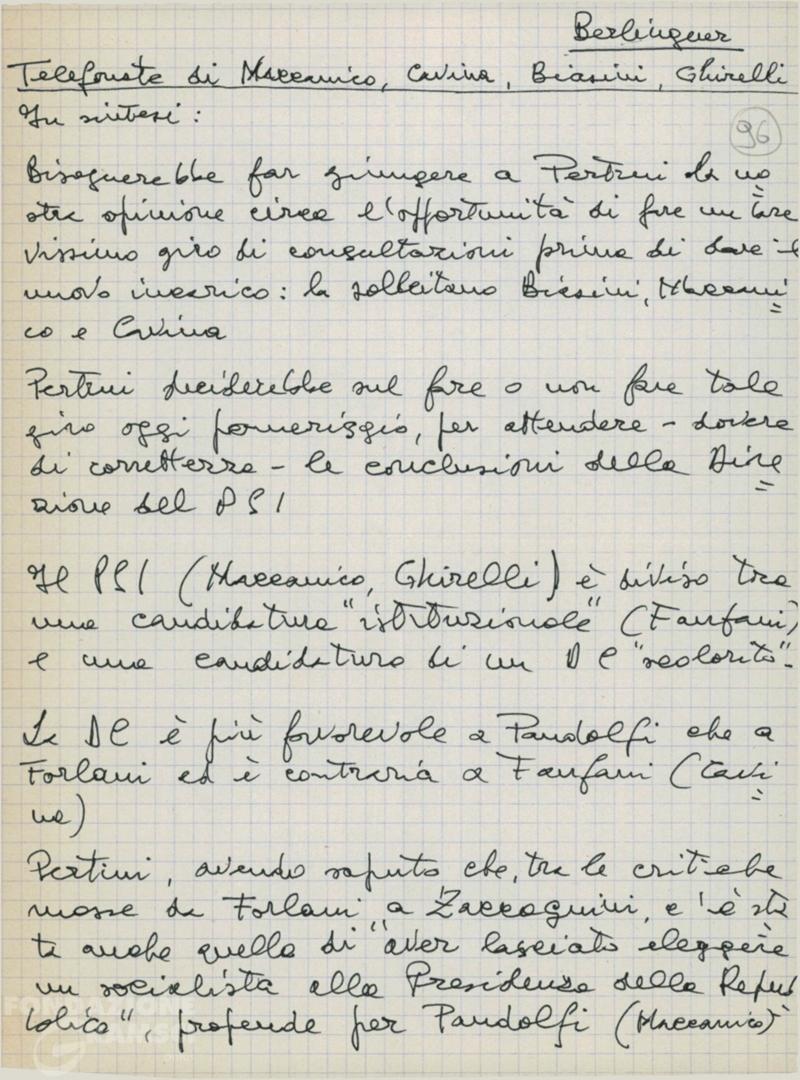 Berlinguer
Telefonate di Maccanico, Cavina, Biasini, Ghirelli
In sintesi:
96
Bisognerebbe far giungere a Pertini la no
stra opinione circa l'opportunità di fare un bre
vissimo giro di consultazioni prima di dare il
nuovo incarico: la sollecitano Biasini, Maccani
co e Cavina
Pertini deciderebbe sul fare o non fare tale
giro oggi pomeriggio, per attendere - dovere
di correttezza - le conclusioni della Dire
zione del PSI
Il PSI (Maccanico, Ghirelli) è diviso tra
una candidatura "istituzionale" (Fanfani)
e una candidatura di un DC "scolorito".
La DC è più favorevole a Pandolfi che a
Forlani ed è contraria a Fanfani (Cavi
na)
Pertini, avendo saputo che, tra le critiche
mosse da Forlani a Zaccagnini, c'è sta
ta anche quella di "aver lasciato eleggere
un socialista alla Presidenza della Repub
blica", propende per Pandolfi (Maccanico)
FONDAZIONE
GRAMSCI